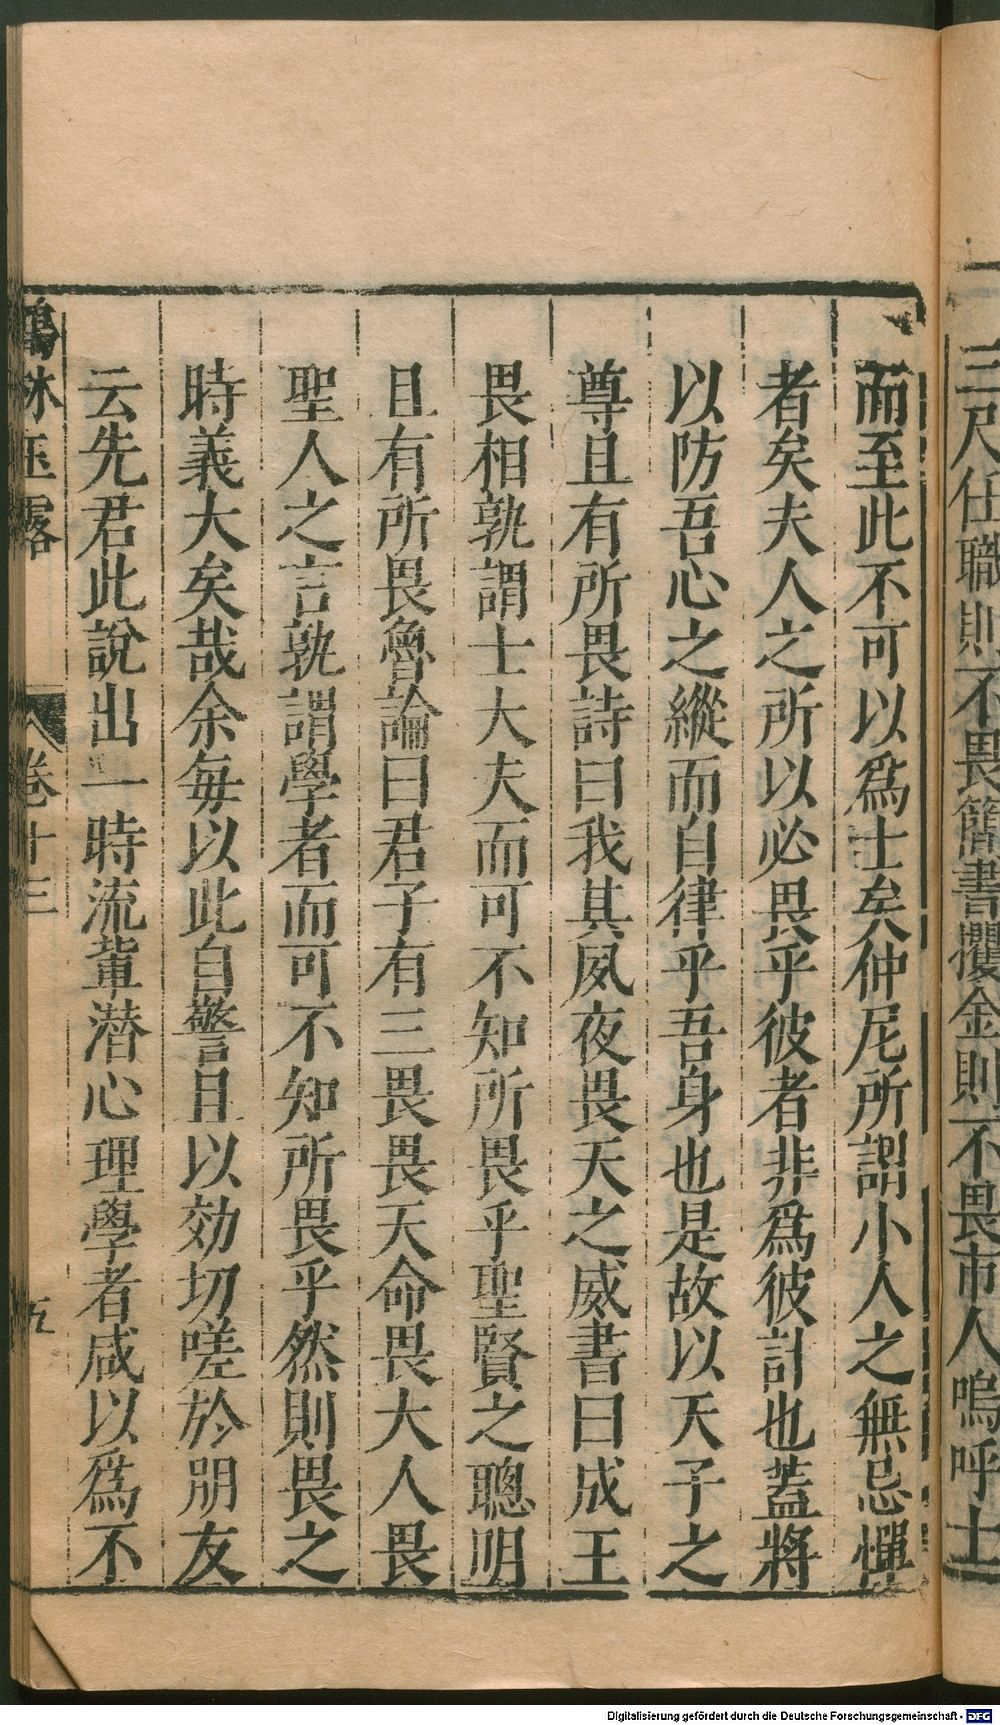 三尺任職則不畏簡書攫金則不畏市人嗚呼士
而至此不可以爲士矣仲尼所謂小人之無忌憚
者矣夫人之所以必畏乎彼者非爲彼計也蓋將
以防吾心之縱而自律乎吾身也是故以天子之
尊且有所畏詩曰我其夙夜畏天之威書曰成王
畏相孰謂士大夫而可不知所畏乎聖賢之聰明
且有所畏魯論曰君子有三畏畏天命畏大人畏
聖人之言孰謂學者而可不知所畏乎然則畏之
時義大矣哉余每以此自警且以効切嗟於朋友
云先君此說出一時流輩潜心理學者咸以爲不
鶴林玉露 卷十三 五
Digitalisierung gefördert durch die Deutsche Forschungsgemeinschaft - DFG